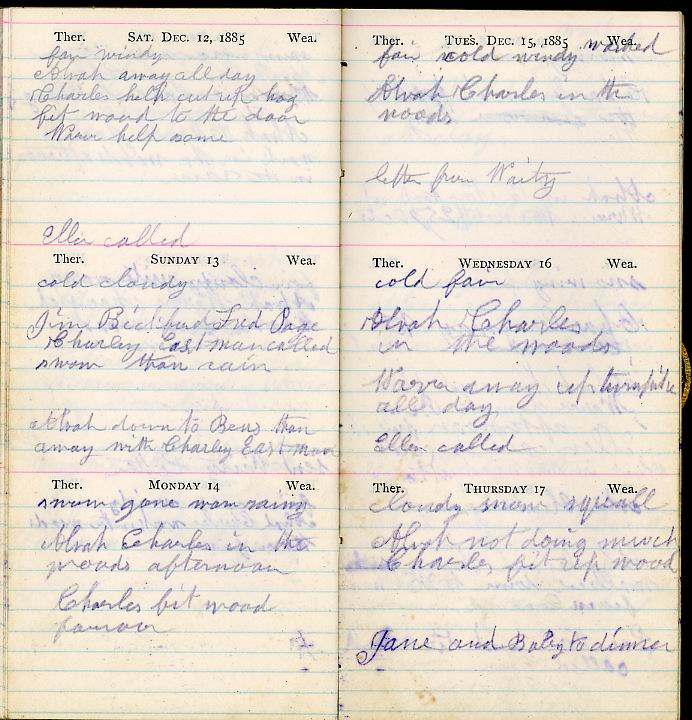 Ther. SAT. DEC. 12, 1885 Wea.
fair windy
Alvah away all day
Charles help cut up hog
fit wood to the door
help some
Ellen called
Ther. SUNDAY 13 Wea.
cold cloudy
Jim Bickford Fred Page
Charley Eastman called
snow than rain
Alvah down to Bens than
away with Charley Eastman
Ther. MONDAY 14 Wea.
snow gone warm
Alvah Charles in the
woods afternoon
Charles fit wood
Ther. TUES. DEC. 15, 1885 Wea.
fair cold windy washed
Alvah Charles in the
woods
letter from
Ther. WEDNESDAY 16 Wea.
cold fair
Alvah Charles
in the woods
away up
all day
Ellen called
Ther. THURSDAY 17 Wea.
cloudy snow squall
Alvah not doing much
Charles fit up wood
Jane and Baby to dinner